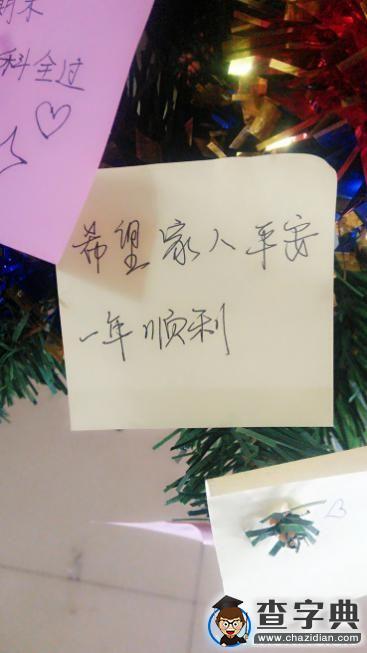 期末
科全过
希望家人平安
一年顺利
查字典
www.chazidian.com